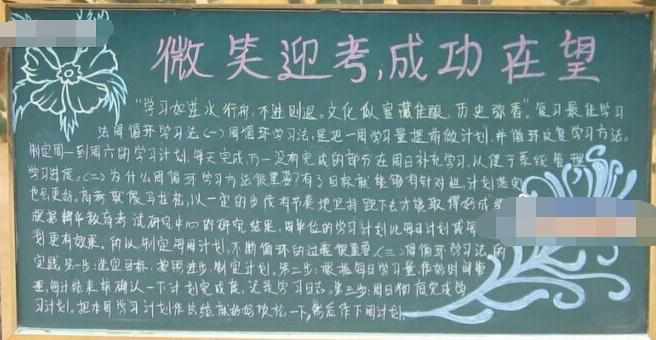 微笑迎考,成功在望
"学习如逆水行舟,不进则退。文化似窖藏佳酿,历史弥香"。复习最佳学习
法周循环学习法(一)周循环学习法,是把一周学习量提前做计划,并循环反复学习方法。
制定周一到周六的学习计划,每天完成,万一没有完成的部分在周日补充学习,从便于系统管理
学习进度。(二)为什么周循环学习方法很重要?有了目标就能够有针对性,计划
以一定的步伐有节奏地坚持跑下去才能取得好成
教育考试研究中心的研究结果,周单位的学习计划比每日计划或每
划更有效果。所以制定每周计划,不断循环的过程很重要。(三)周循环学习法的
实践,第一步:选定目标,按照进步,制定计划。第二步:根据每日学习量作好时间管
理,每日结束前确认一下计划完成度,
习计划。把本周学习计划作总结一下,然后作下周计划